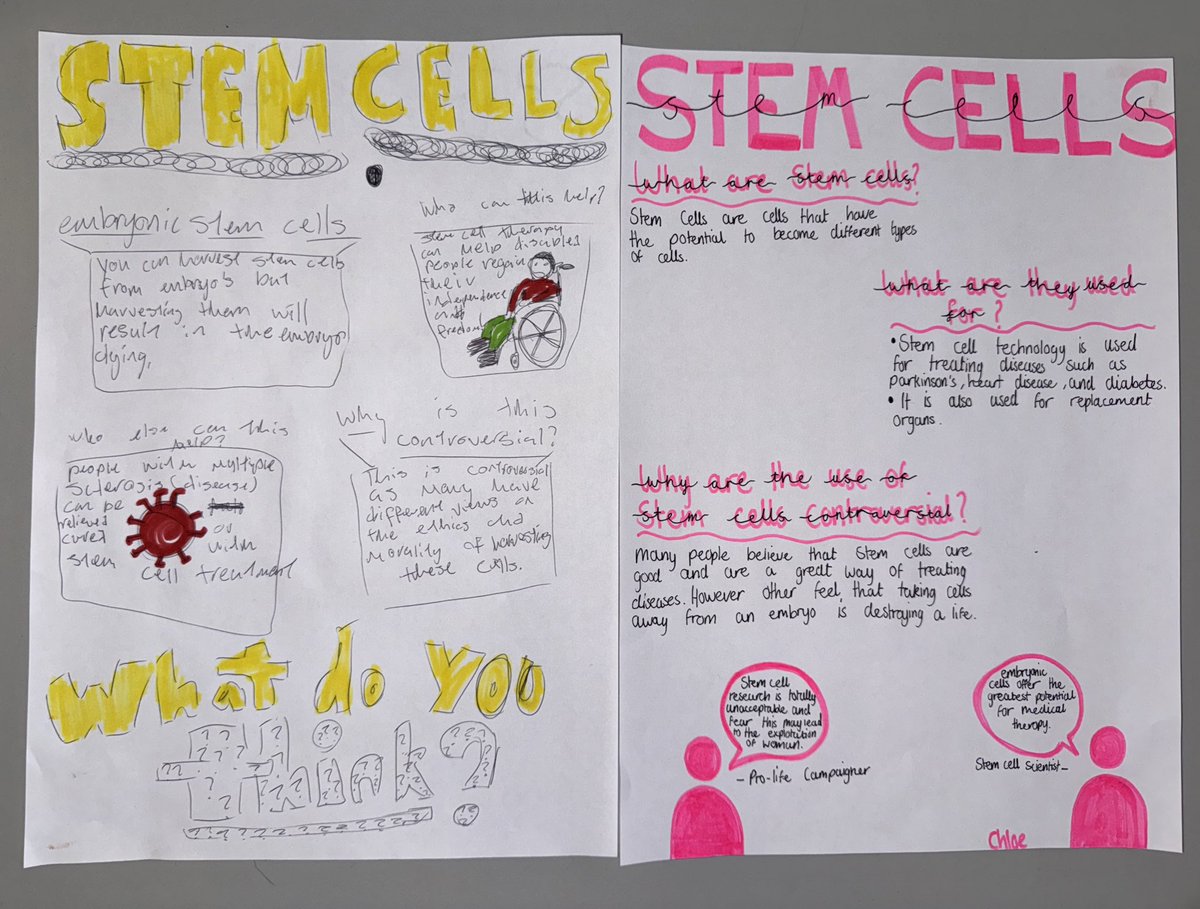 STEM CELLS
embryonic stem cells
you can harvest stem cells
from embryo's but
harvesting them will
result in the embryo
dying,
Who can this help?
stem cell therapy
can help disabled
people regain
their
independence
and
freedom
who else can this
help?
people with multiple
sclerosis (disease)
can be
relieved or
cured with
stem cell treatment
Why is this
controversial?
This is controversial
as many have
different views on
the ethics and
morality of harvesting
these cells.
What do you
think?
STEM CELLS
stem cells
What are stem cells?
Stem Cells are cells that have
the potential to become different types
of cells.
What are they used
for?
• Stem cell technology is used
for treating diseases such as
parkinson's, heart disease, and diabetes.
• It is also used for replacement
organs.
Why are the use of
stem cells controversial?
Many people believe that stem cells are
good and are a great way of treating
diseases. However other feel that taking cells
away from an embryo is destroying a life.
Stem cell
research is totally
unacceptable and
fear this may lead
to the exploitation
of woman.
- Pro-life Campaigner
embryonic
cells offer the
greatest potential
for medical
therapy.
Stem cell scientist -
Chloe